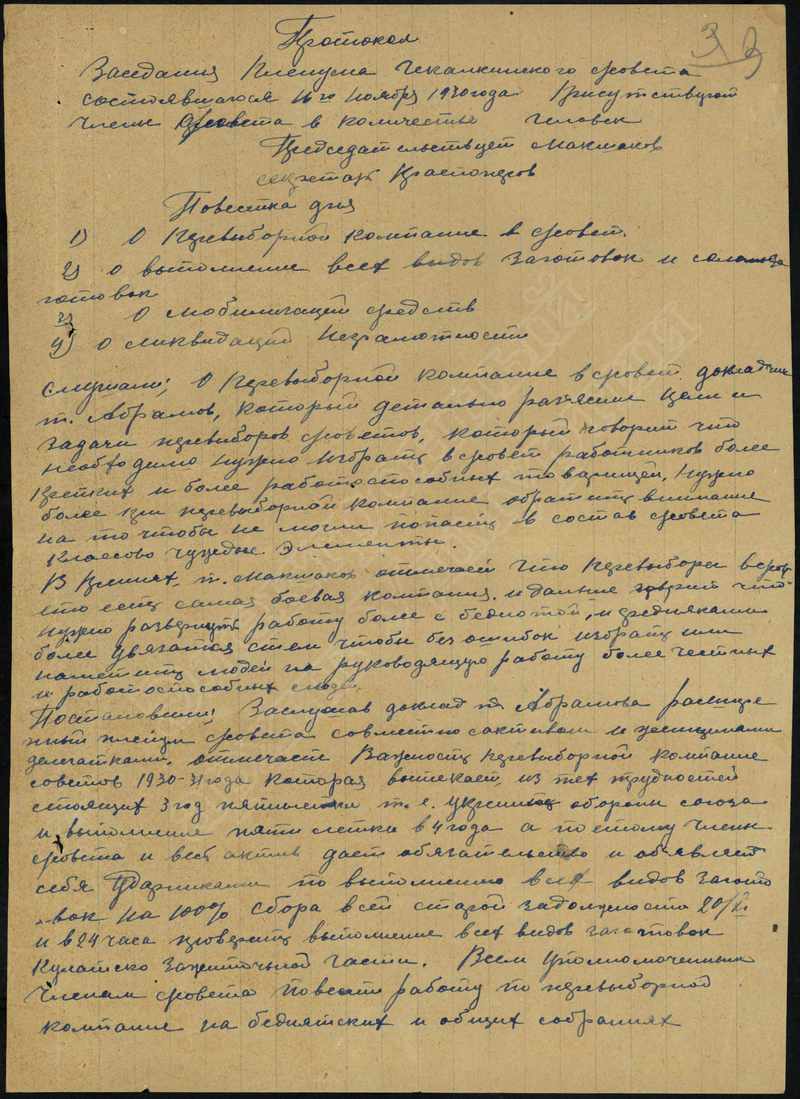 Протокол
33
Заседания Пленума Чекалкинского с/совета
состоявшагося 16го ноября 1930 года Присутствуют
члены с/совета в количестве человек
Председательствует Макшаков
секретарь Краснопёров
Повестка дня
1) О Перевыборной компание в с/совет.
2) О выполнение всех видов заготовок и самоза
готовок
3) О мобилизаций средств
4) О ликвидаций неграмотности
Слушали; О Перевыборной компание в с/совет докладчик
т. Абрамов, который детально разяснил цели и
задачи перевыборов с/советов, который говорит что
необходимо нужно избрать в с/совет работников более
крепких и более работоспособных товарищей, нужно
более при перевыборной компание обратить внимание
на то чтобы не могли попасть в состав с/совета
классово чуждые элементы.
В Прениях т. Макшаков отмечает что перевыборы в с/сов
это есть самая боевая компания. и дальше говрит что
нужно развернуть работу более с беднотой, и средняками
более увязатся с тем чтобы без ошибок избрать или
наметить людей на руководящую работу более честных
и работоспособных людей.
Постановили; Заслушав доклад т. Абрамова расшире
ный пленум с/совета совместно с активом и женщинами
делегатками. отмечает Важность перевыборной компание
советов 1930-31 года которая вытекает из тех трудностей
стоящих 3 год пятилетки т. е. укрепить обороны союза
и выполнение пяти летки в 4 года а поетому члены
с/совета и весь актив дает обязательство и обявляет
себя Ударниками по выполнению всех видов загото
вок на 100% сбора всей старой задолжености 20/XI.
и в 24 часа проверить выполнение всех видов заготовок
Кулатско зажиточной части. Всем уполномоченным
членам с/совета повести работу по перевыборной
компание на беднятских и общих собраниях